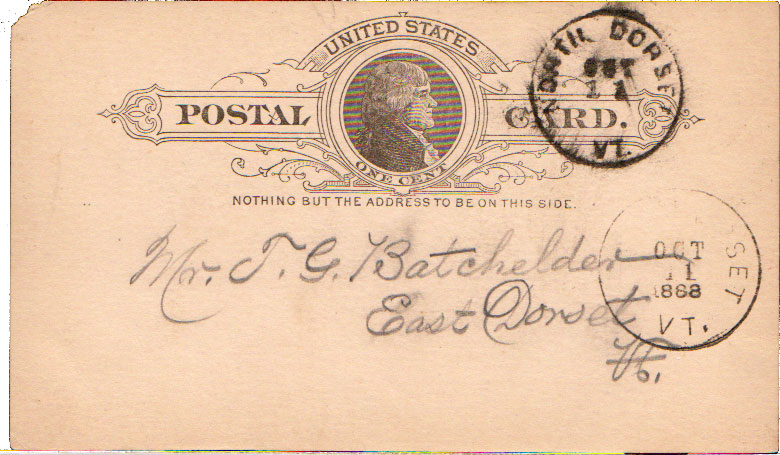 UNITED STATES
POSTAL CARD.
ONE CENT
NOTHING BUT THE ADDRESS TO BE ON THIS SIDE.
NORTH DORSET
OCT
11
VT.
SET
OCT
11
1888
VT.
Mr. T. G. Batchelder
East Dorset
Vt.